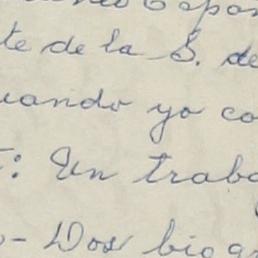 te de la S. de
uando yo co
: Un traba
- Dos biog